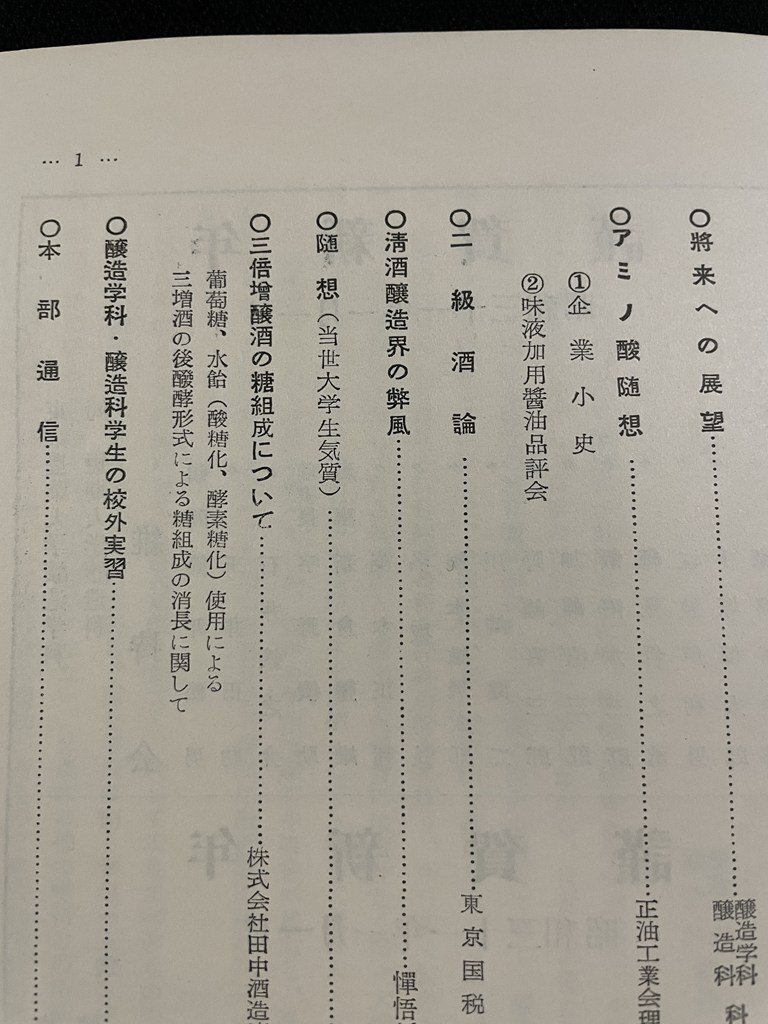 … 1 …
〇將来への展望……醸造学科
醸造科 科
〇アミノ酸随想……正油工業会理
①企業小史
②味液加用醬油品評会
〇二級酒論……東京国税
〇清酒醸造界の弊風……憚悟
〇随想（当世大学生気質）……
〇三倍增醸酒の糖組成について……株式会社田中酒造
葡萄糖、水飴（酸糖化、酵素糖化）使用による
三増酒の後醱酵形式による糖組成の消長に関して
〇醸造学科・醸造科学生の校外実習……
〇本部通信……